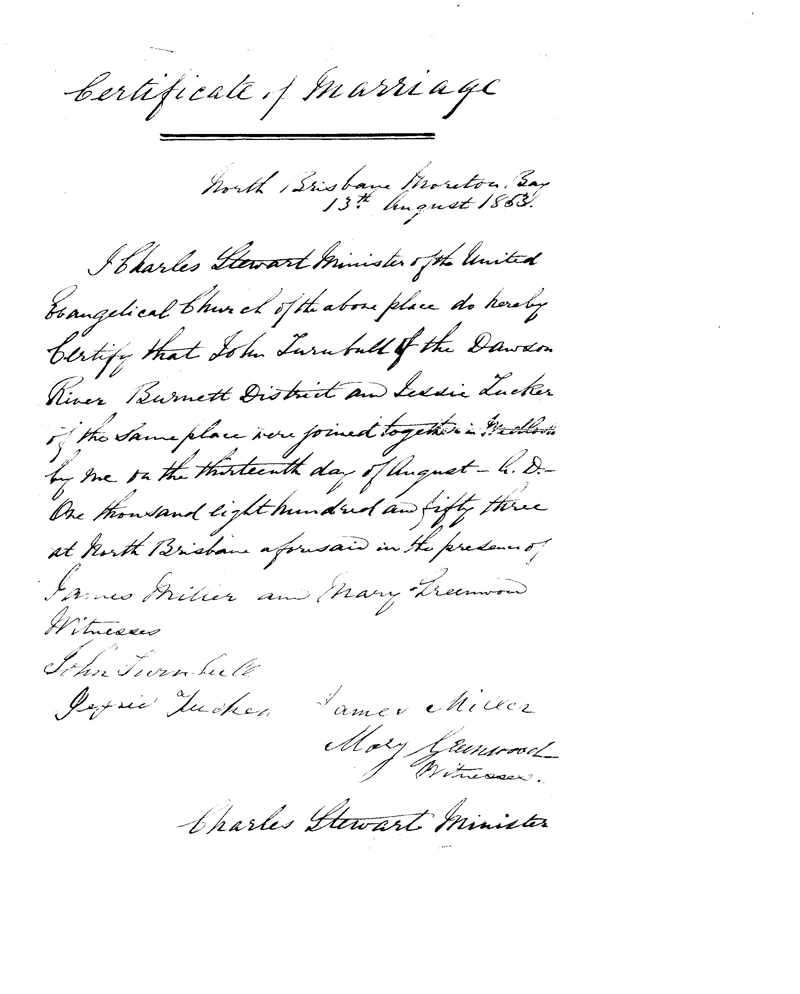 Certificate of Marriage
North Brisbane Moreton Bay
13th August 1853.
I Charles Stewart Minister of the United
Evangelical Church of the above place do hereby
Certify that John Turnbull of the Dawson
River Burnett District and Jessie Tucker
of the same place were joined together in Wedlock
by me on the thirteenth day of August – A. D. –
One thousand eight hundred and fifty three
at North Brisbane aforesaid in the presence of
James Miller and Mary Greenwood
Witnesses
John Turnbull
Jessie Tucker James Miller
Mary Greenwood
Witnesses.
Charles Stewart Minister